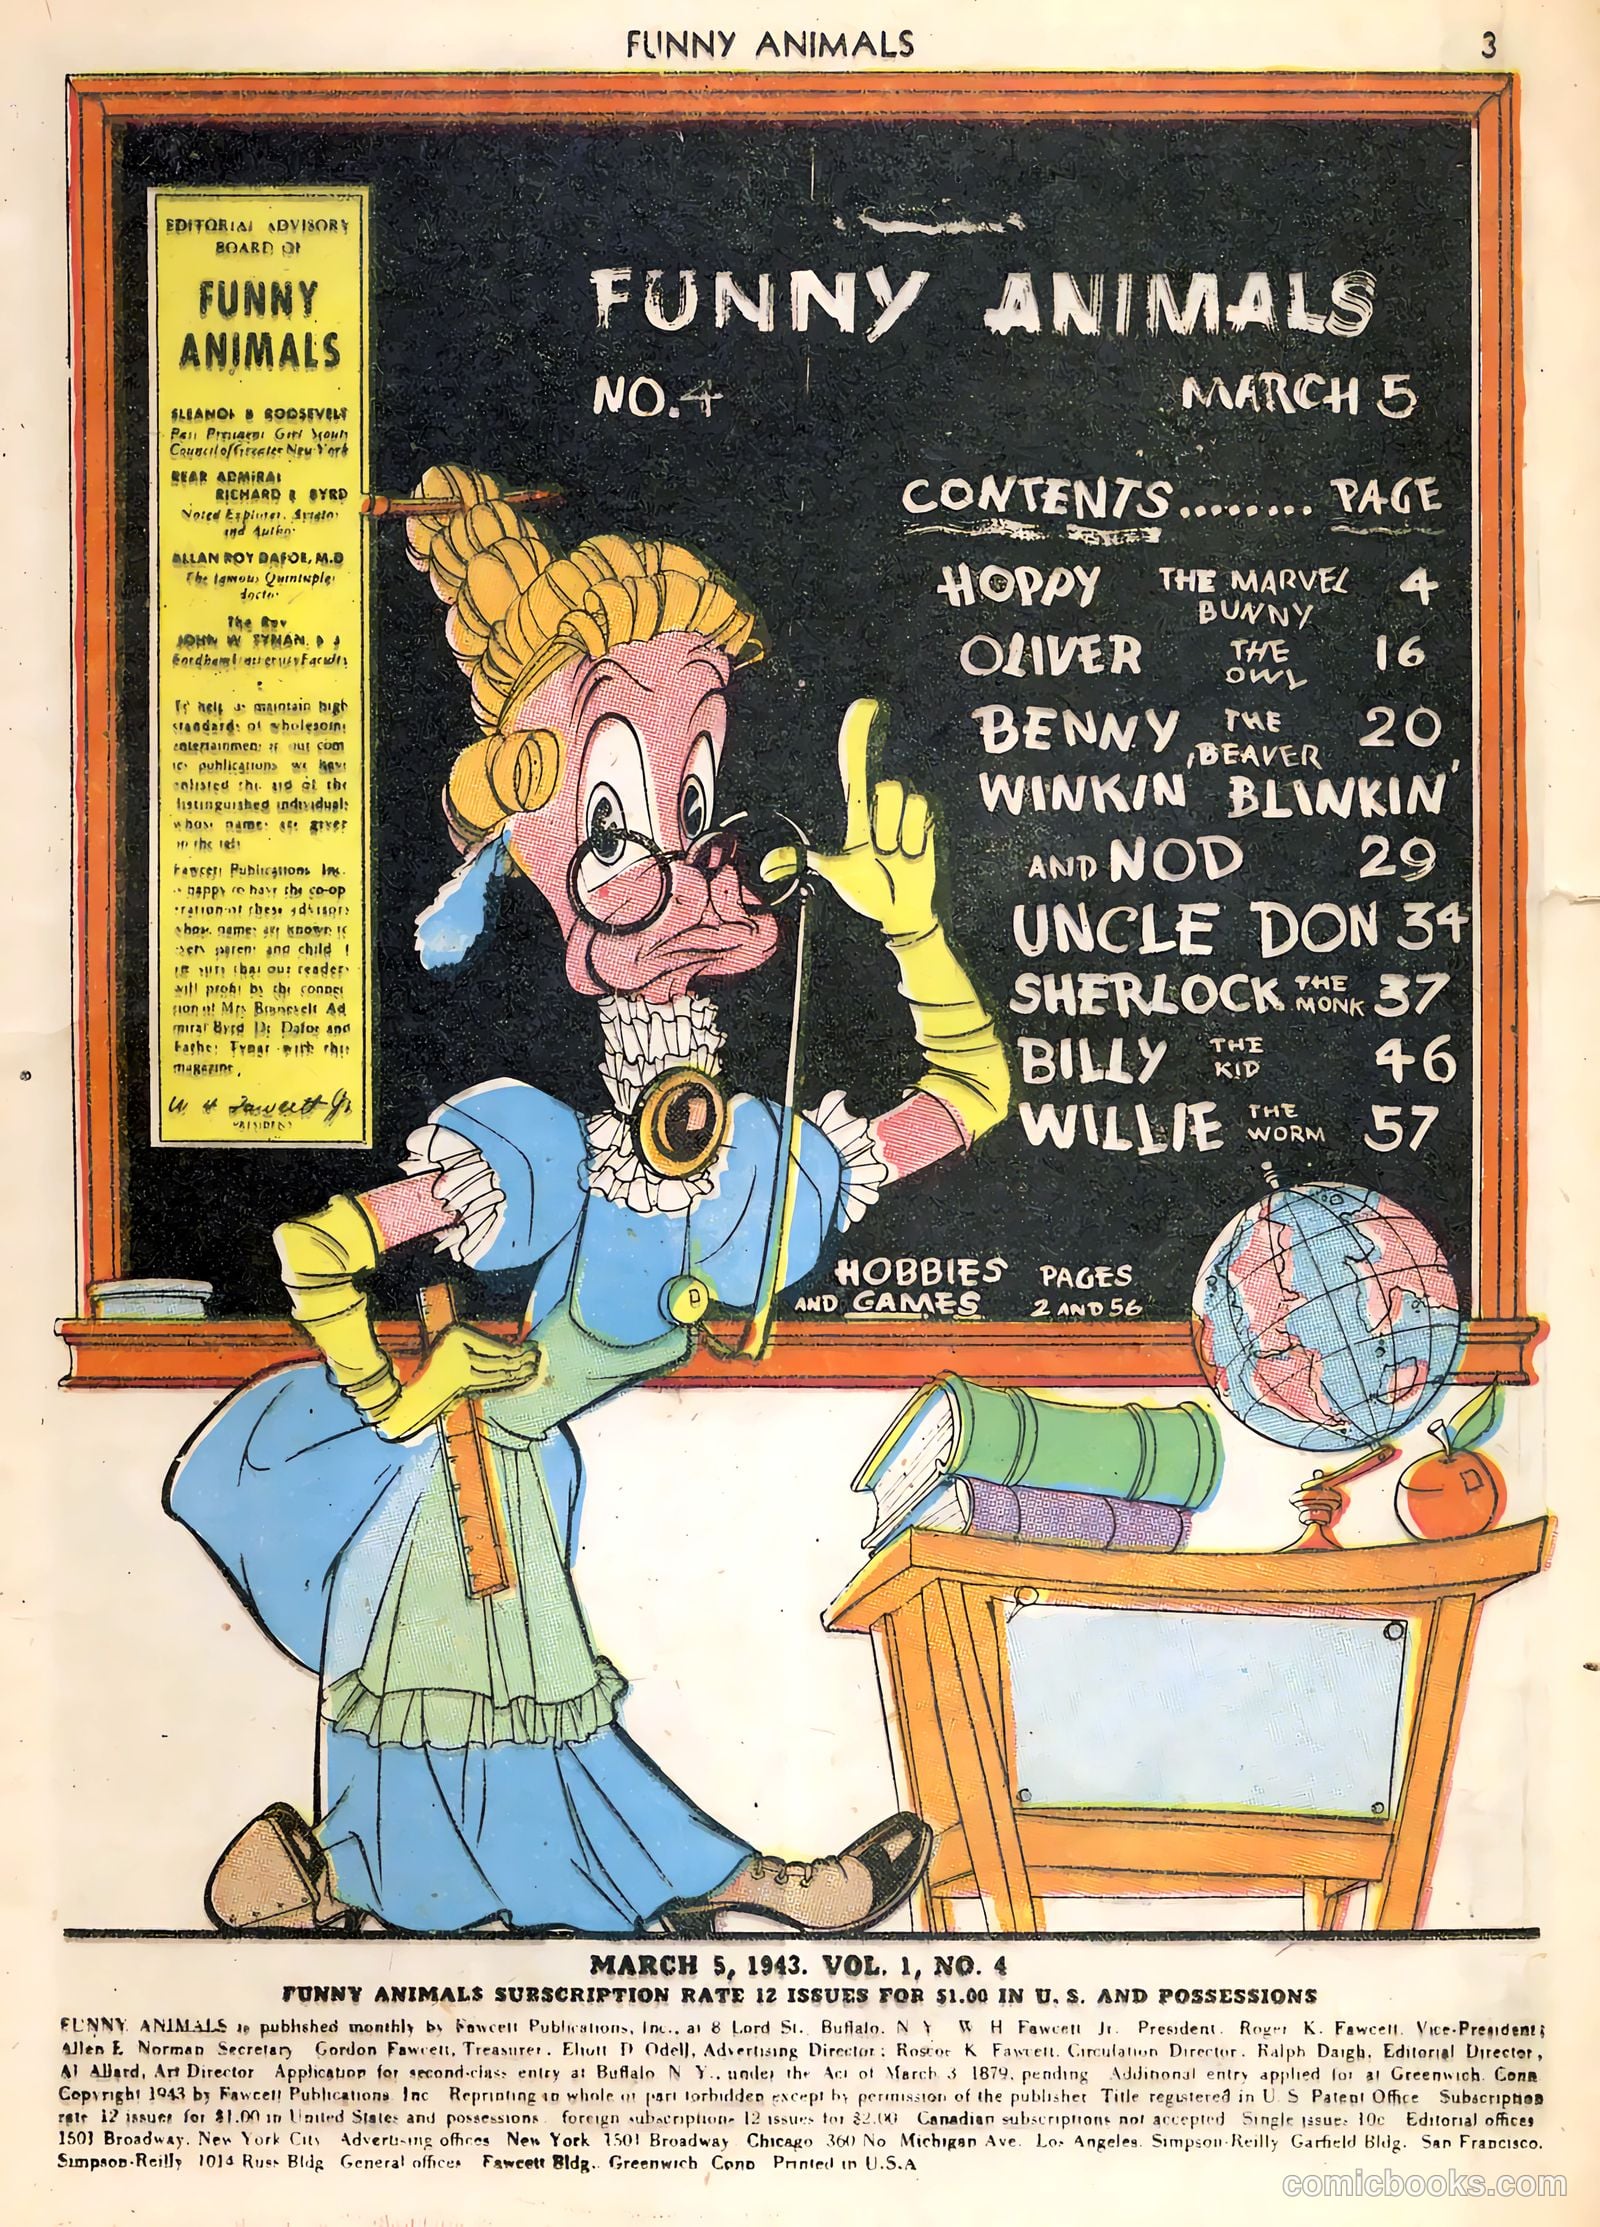 FUNNY ANIMALS 3
EDITORIAL ADVISORY
BOARD OF
FUNNY
ANIMALS
ELEANOR B ROOSEVELT
Past President Girl Scouts
Council of Greater New York
REAR ADMIRAL
RICHARD E BYRD
Noted Explorer, Aviator
and Author
ALLAN ROY DAFOE, M.D
The famous Quintuplet
doctor
The Rev
JOHN W TYNAN, S J
Fordham University Faculty
To help us maintain high
standards of wholesome
entertainment in our com
ics publications we have
enlisted the aid of the
distinguished individuals
whose names are given
to the left
Fawcett Publications Inc.
is happy to have the co-op
eration of these advisors
whose names are known to
every parent and child I
am sure that our readers
will profit by the connec
tion of Mrs Roosevelt Ad
miral Byrd Dr Dafoe and
Father Tynan with this
magazine.
W H Fawcett Jr.
PRESIDENT
FUNNY ANIMALS
NO. 4 MARCH 5
CONTENTS........ PAGE
HOPPY THE MARVEL 4
BUNNY
OLIVER THE 16
OWL
BENNY THE 20
BEAVER
WINKIN BLINKIN'
AND NOD 29
UNCLE DON 34
SHERLOCK THE MONK 37
BILLY THE KID 46
WILLIE THE WORM 57
HOBBIES PAGES
AND GAMES 2 AND 56
MARCH 5, 1943. VOL. 1, NO. 4
FUNNY ANIMALS SUBSCRIPTION RATE 12 ISSUES FOR $1.00 IN U. S. AND POSSESSIONS
FUNNY ANIMALS is published monthly by Fawcett Publications, Inc., at 8 Lord St., Buffalo, N Y W H Fawcett Jr. President. Roger K. Fawcett, Vice-President;
Allen E Norman Secretary Gordon Fawcett, Treasurer. Eliott D Odell, Advertising Director; Roscoe K Fawcett, Circulation Director. Ralph Daigh, Editorial Director,
Al Allard, Art Director Application for second-class entry at Buffalo N Y., under the Act of March 3 1879, pending Additional entry applied for at Greenwich. Conn
Copyright 1943 by Fawcett Publications Inc Reprinting in whole or part forbidden except by permission of the publisher Title registered in U S Patent Office Subscription
rate 12 issues for $1.00 in United States and possessions. foreign subscriptions 12 issues for $2.00 Canadian subscriptions not accepted Single issues 10c Editorial offices
1501 Broadway, New York City Advertising offices New York 1501 Broadway Chicago 360 No Michigan Ave. Los Angeles. Simpson-Reilly Garfield Bldg. San Francisco,
Simpson-Reilly 1014 Russ Bldg General offices Fawcett Bldg., Greenwich Conn Printed in U.S.A
comicbooks.com